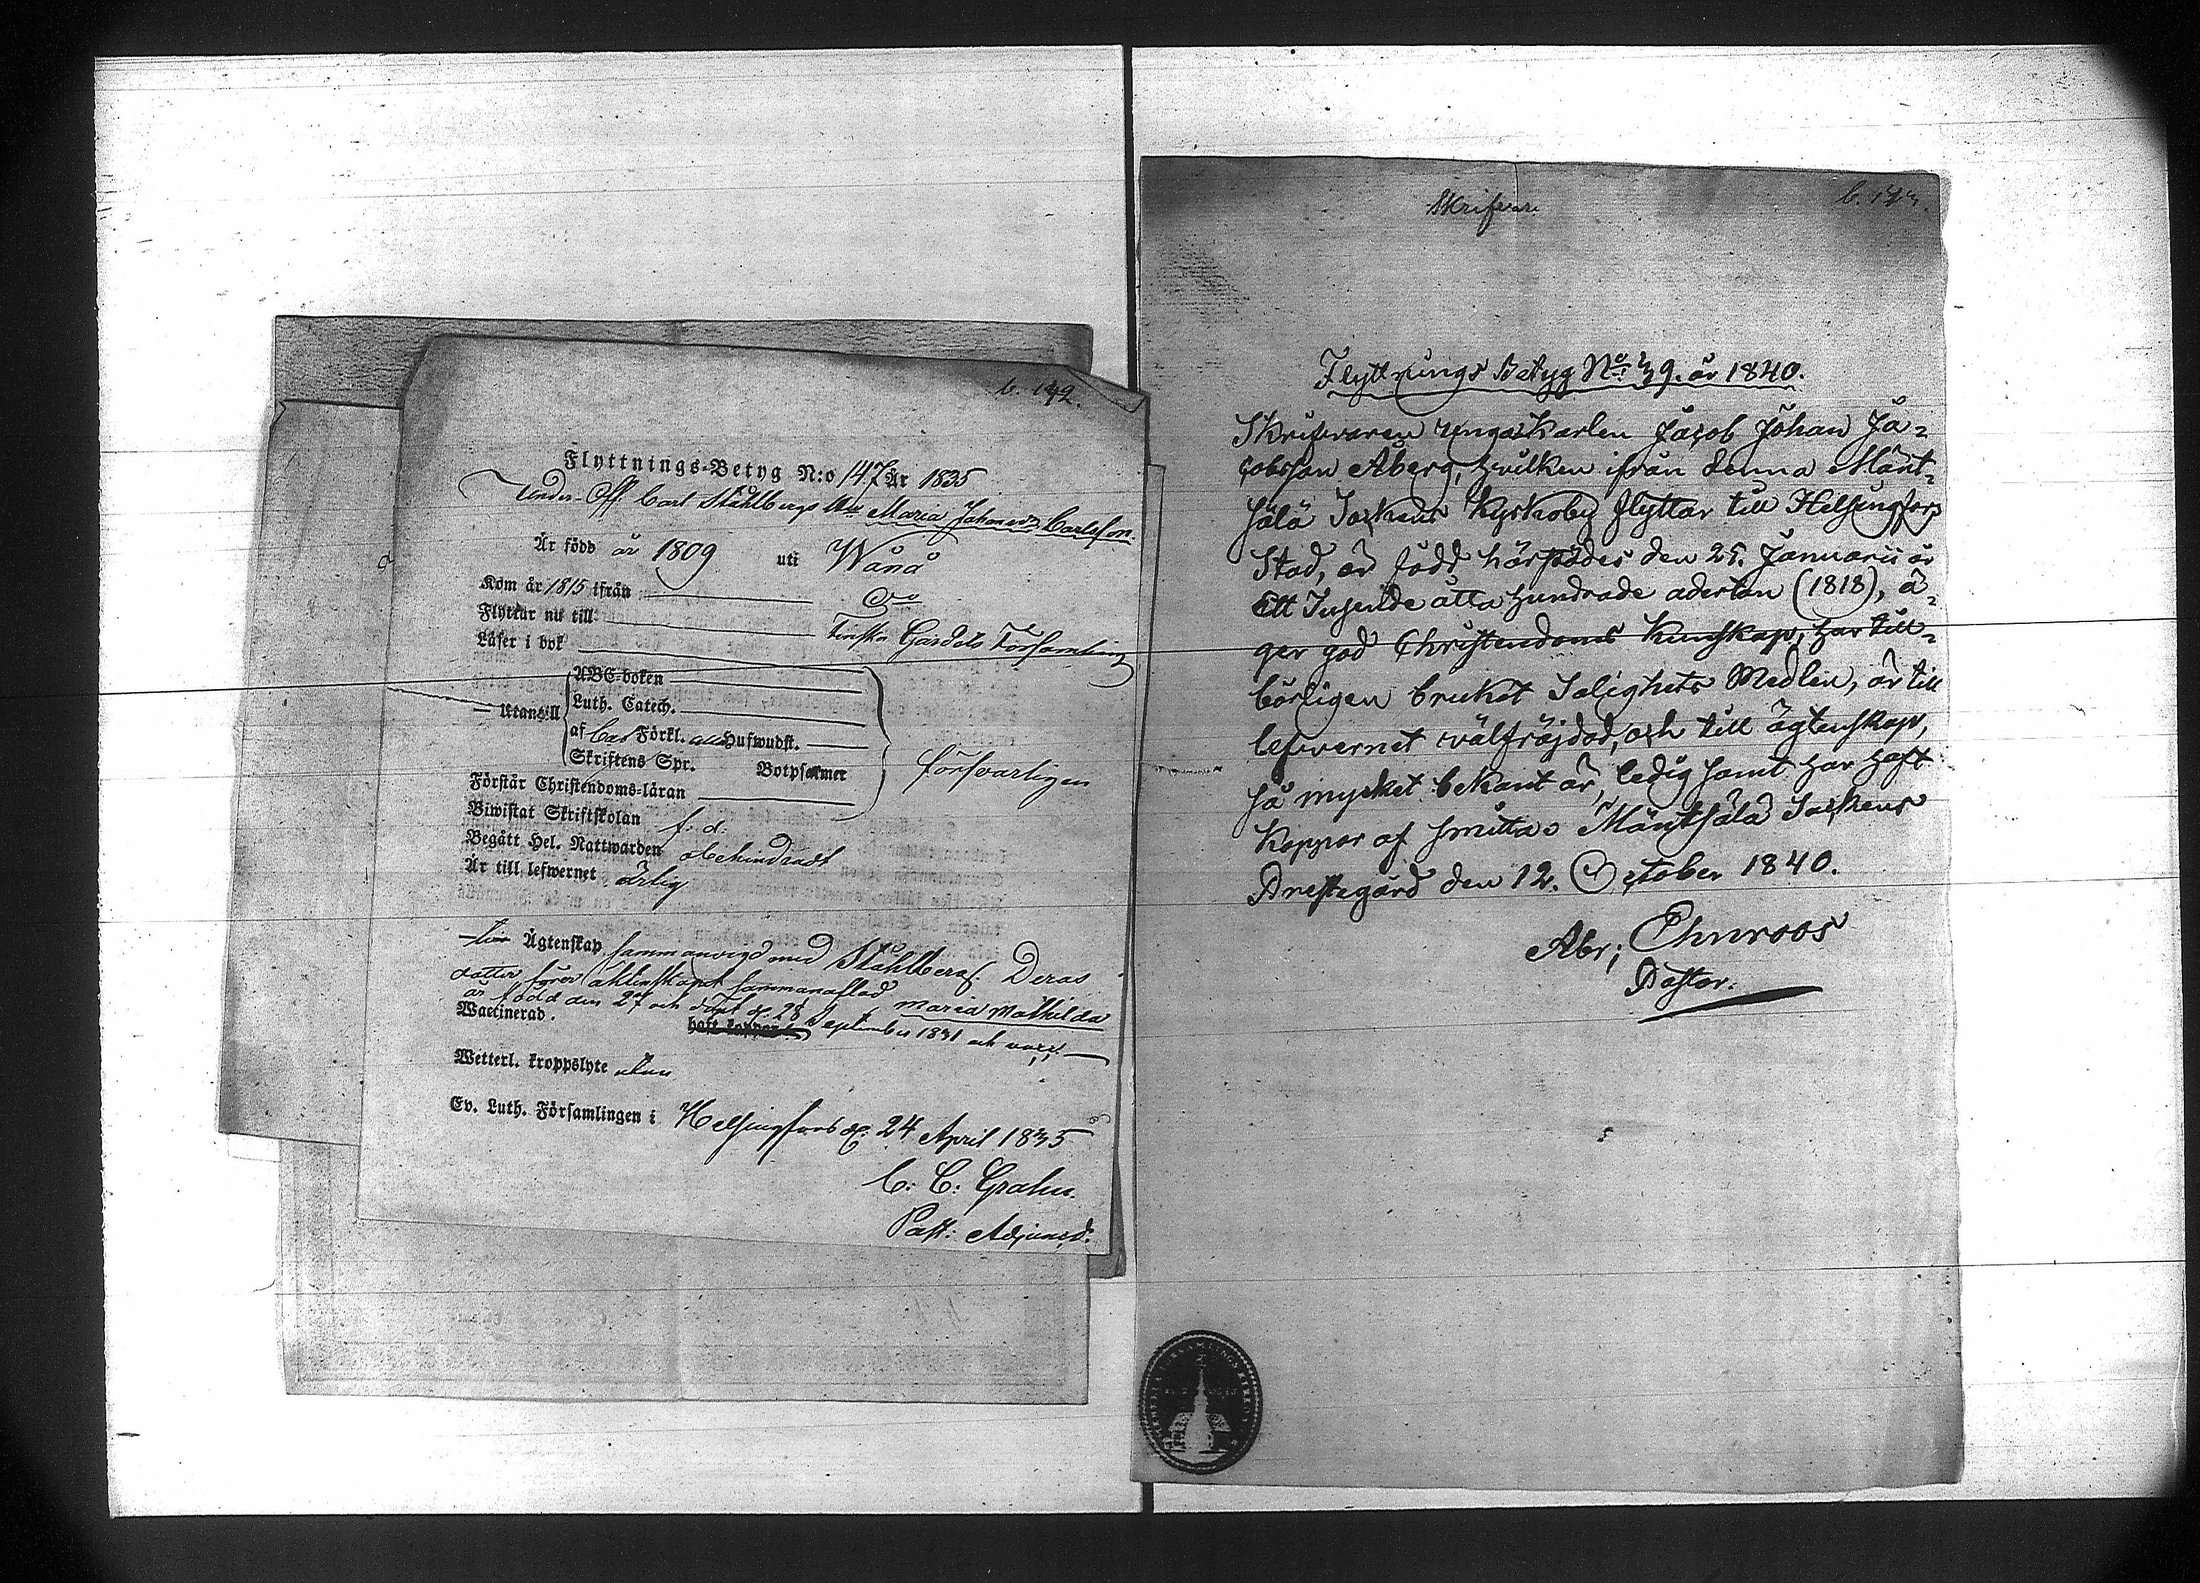 b. 142.
Flyttnings-Betyg N:o 147 År 1835
Under-Off. Carl Ståhlbergs Maria Johansd:r Carlsson.
Är född år 1809 uti Wånå
Kom år 1815 ifrån
Flyttar nu till Finska Gardets Församling
Läser i bok
— Utantill
ABC-boken
Luth. Catech.
af Förkl. alla Hufwudst.
Skriftens Spr. Botpsalmer
försvarligen
Förstår Christendoms-läran
Biwistat Skriftskolan f. d.
Begått Hel. Nattwarden obehindradt
Är till lefwernet ärlig
Ägtenskap sammanvigd med Ståhlberg. Deras
dotter före äktenskapet sammanaflad Maria Mathilda
är född den 27 och döpt d. 28 September 1831 och vacc.
Waccinerad. haft koppor
Wetterl. kroppslyte utan
Ev. Luth. Församlingen i Helsingfors d. 24 April 1835
C. C. Grahn.
Past: Adjunct.
Skrifvare
b. 143.
Flyttnings Betyg No 39. år 1840.
Skrifvaren Ungaskarlen Jacob Johan Ja-
cobsson Åberg, hvilken ifrån denna Mänt-
sälä Sockens Kyrkoby flyttar till Helsingfors
Stad, är född härstädes den 25. Januarii år
Ett Tusende åtta hundrade aderton (1818), ä-
ger god Christendoms Kunskap, har till-
börligen brukat Salighets Medlen, är till
lefvernet välfräjdad, och till ägtenskap,
så mycket bekant är, ledig samt har haft
Koppor af smitta. Mäntsälä Sockens
Prestegård den 12. October 1840.
Abr; Ehnroos
Pastor.